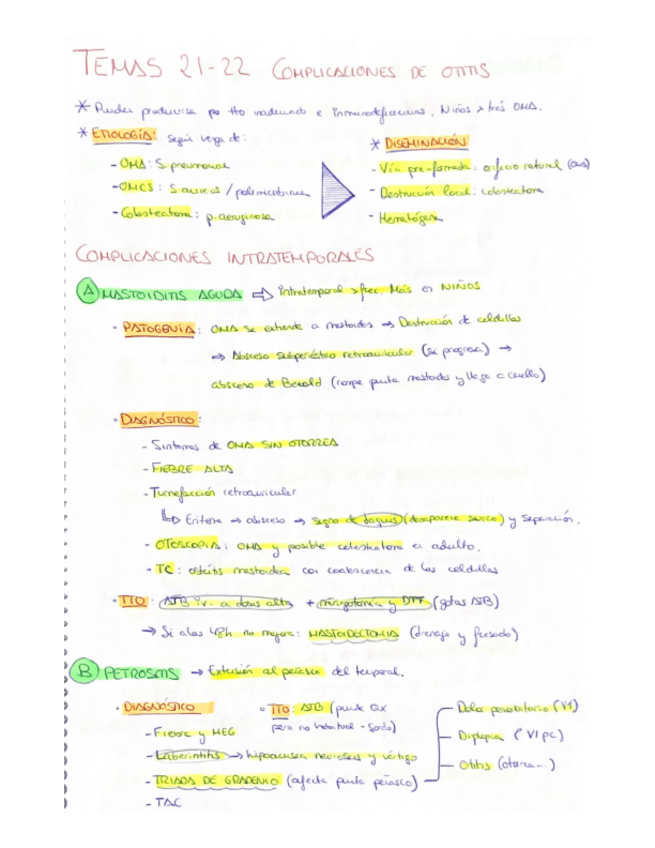 TEMAS 21-22 COMPLICACIONES DE OTITIS
* Pueden producirse por tto inadecuado e inmunodeficiencias. Niños > tras OMA.
* ETIOLOGÍA: según venga de:
- OMA: S. pneumoniae
- OMCS: S aureus / polimicrobiana
- Colesteatoma: p. aeruginosa
* DISEMINACIÓN
- Vía pre-formada: orificio natural
- Destrucción local: colesteatoma
- Hematógena
COMPLICACIONES INTRATEMPORALES
A MASTOIDITIS AGUDA ⇨ Intratemporal > frec. Más en NIÑOS
· PATOGENIA: OMA se extiende a mastoides → Destrucción de celdillas
→ Absceso subperióstico retroauricular (si progresa) →
absceso de Bezold (rompe punta mastoides y llega a cuello)
· DIAGNÓSTICO:
- Síntomas de OMA SIN OTORREA
- FIEBRE ALTA
- Tumefacción retroauricular
↳ Eritema → absceso → signo de Jacques (desaparece surco) y separación.
- OTOSCOPIA: OMA y posible colesteatoma en adulto.
- TC: osteítis mastoidea con coalescencia de las celdillas
· TTO: ATB i.v. a dosis altas + miringotomía y DTT (gotas ATB)
→ Si a las 48h no mejora: MASTOIDECTOMIA (drenaje y fresado)
B PETROSITIS → Extensión al peñasco del temporal.
· DIAGNÓSTICO
- Fiebre y MEG
- Laberintitis → hipoacusia neurosens y vértigo
- TRIADA DE GRADENIGO (afecta punta peñasco)
- TAC
· TTO: ATB (puede Qx
pero no habitual - sordo)
- Dolor periorbitario (V1)
- Diplopia (VI pc)
- Otitis (otorrea...)